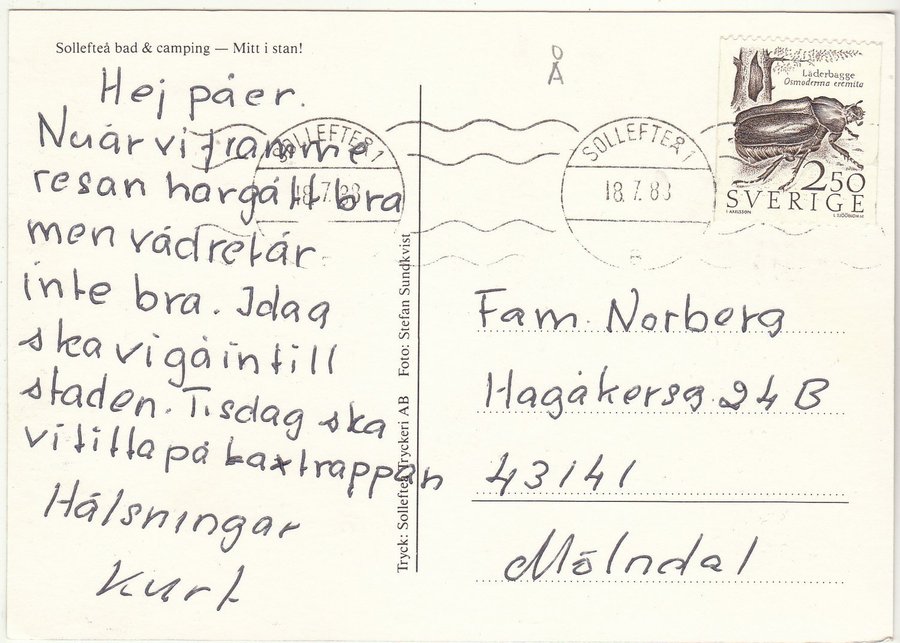 Sollefteå bad & camping — Mitt i stan!
Hej påer.
Nu är vi framme
resan har gått bra
men vädret är
inte bra. Idag
ska vi gå in till
staden. Tisdag ska
vi titta på laxtrappan
Hälsningar
Kurt
Tryck: Sollefteå Tryckeri AB Foto: Stefan Sundkvist
SOLLEFTEÅ 1
18.7.88
SOLLEFTEÅ 1
18.7.88
Läderbagge
Osmoderma eremita
2 50
SVERIGE
Fam. Norberg
Hagåkersg. 24 B
43141
Mölndal